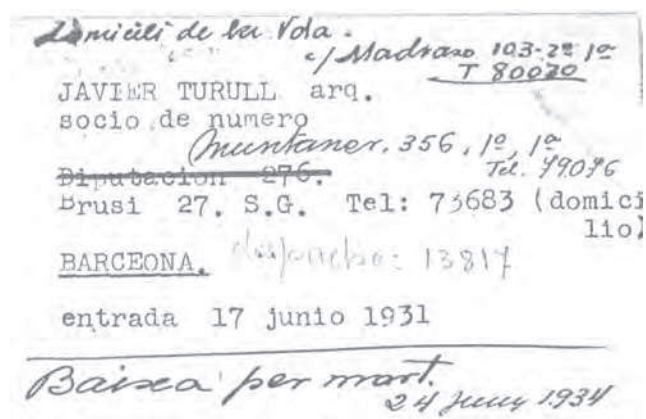 Domicili de la Vda.
c/ Madrazo 103-2º 1ª
T 80020
JAVIER TURULL arq.
socio de numero
Muntaner. 356, 1º, 1ª
Tel. 79076
Diputacion 276.
Brusi 27. S.G. Tel: 73683 (domici
lio)
BARCEONA. despacho: 13817
entrada 17 junio 1931
Baixa per mort.
24 juny 1934